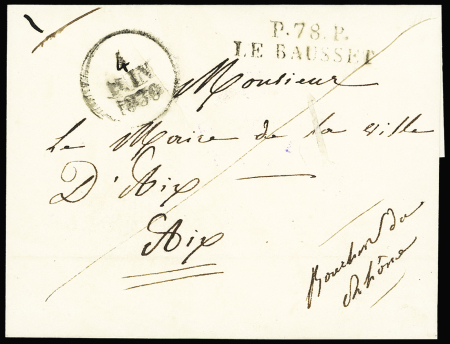 P.78.P.
LE BAUSSET
4
JUIN
1830
Monsieur
le Maire de la ville
D'Aix
Aix
Bouches du
Rhône